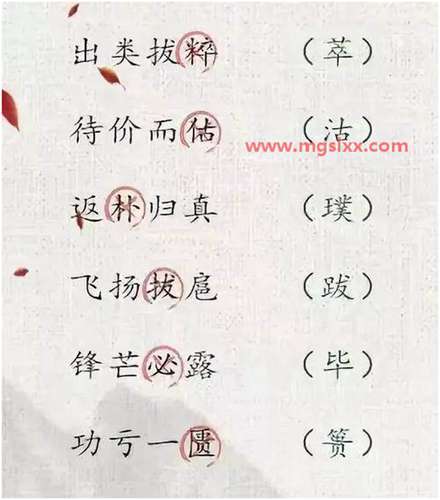 出类拔粹 （萃）
待价而估 （沽）
www.mgslxx.com
返朴归真 （璞）
飞扬拔扈 （跋）
锋芒必露 （毕）
功亏一匮 （篑）